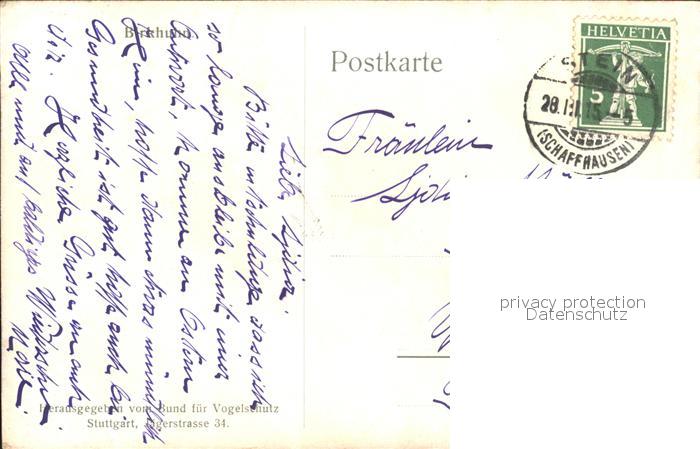 Birkhuhn
Liebe Lydia!
Bitte entschuldige dass ich
so lange ausbleibe mit einer
Antwort, komme an Ostern
Heim, hoffe dann etwas mündlich
Gesundheit ist gut hoffe auch bei
diz. Herzliche Grüsse an euch
Alle und auf baldiges Wiedersehn
Herausgegeben vom Bund für Vogelschutz
Stuttgart, Jägerstrasse 34.
Postkarte
HELVETIA
5
STEIN
28.III.15 - 5
(SCHAFFHAUSEN)
Fräulein
privacy protection
Datenschutz